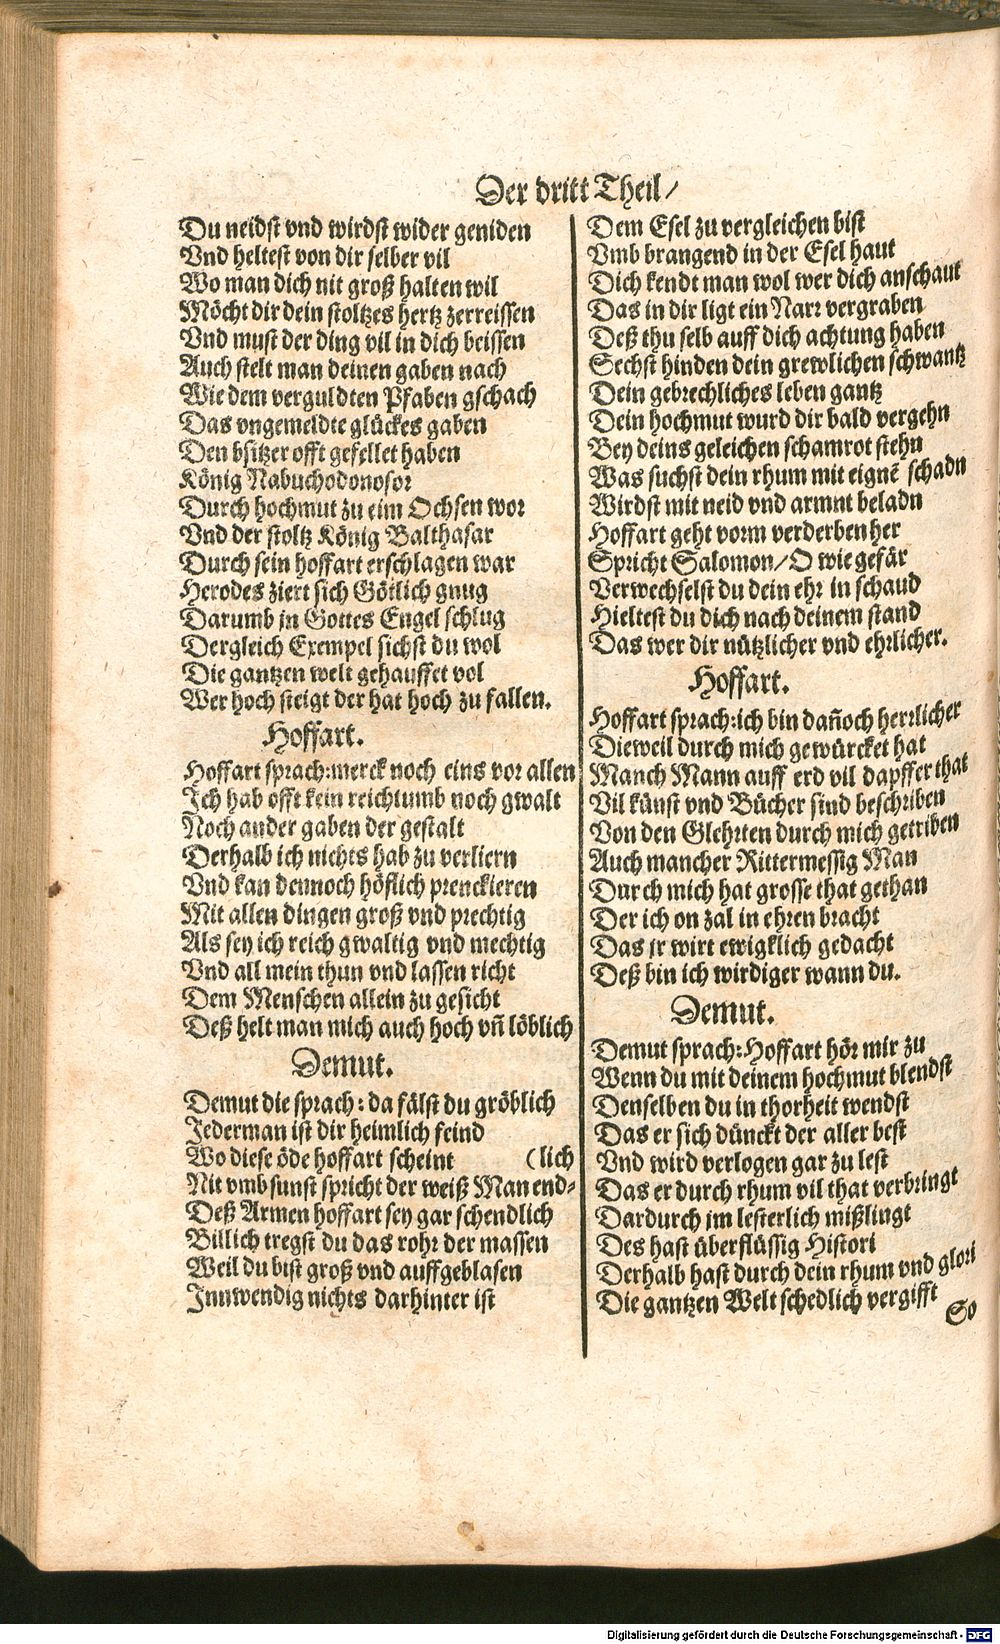 Der dritt Theil/
Du neidst vnd wirdst wider geniden
Vnd heltest von dir selber vil
Wo man dich nit groß halten wil
Möcht dir dein stoltzes hertz zerreissen
Vnd must der ding vil in dich beissen
Auch stelt man deinen gaben nach
Wie dem verguldten Pfaben gschach
Das vngemeldte glückes gaben
Den bsitzer offt gefellet haben
König Nabuchodonosor
Durch hochmut zu eim Ochsen wor
Vnd der stoltz König Balthasar
Durch sein hoffart erschlagen war
Herodes ziert sich Götlich gnug
Darumb jn Gottes Engel schlug
Dergleich Exempel sichst du wol
Die gantzen welt gehauffet vol
Wer hoch steigt der hat hoch zu fallen.
Hoffart.
Hoffart sprach:merck noch eins vor allen
Ich hab offt kein reichtumb noch gwalt
Noch ander gaben der gestalt
Derhalb ich nichts hab zu verliern
Vnd kan dennoch höflich prenckieren
Mit allen dingen groß vnd prechtig
Als sey ich reich gwaltig vnd mechtig
Vnd all mein thun vnd lassen richt
Dem Menschen allein zu gesicht
Deß helt man mich auch hoch vñ löblich
Demut.
Demut die sprach: da fälst du gröblich
Jederman ist dir heimlich feind
Wo diese öde hoffart scheint (lich
Nit vmbsunst spricht der weiß Man end-
Deß Armen hoffart sey gar schendlich
Billich tregst du das rohr der massen
Weil du bist groß vnd auffgeblasen
Innwendig nichts darhinter ist
Dem Esel zu vergleichen bist
Vmb brangend in der Esel haut
Dich kendt man wol wer dich anschaut
Das in dir ligt ein Narr vergraben
Deß thu selb auff dich achtung haben
Sechst hinden dein grewlichen schwantz
Dein gebrechliches leben gantz
Dein hochmut wurd dir bald vergehn
Bey deins geleichen schamrot stehn
Was suchst dein rhum mit eignẽ schadn
Wirdst mit neid vnd armnt beladn
Hoffart geht vorm verderben her
Spricht Salomon/O wie gefär
Verwechselst du dein ehr in schaud
Hieltest du dich nach deinem stand
Das wer dir nützlicher vnd ehrlicher.
Hoffart.
Hoffart sprach:ich bin dañoch herrlicher
Dieweil durch mich gewürcket hat
Manch Mann auff erd vil dapffer that
Vil künst vnd Bücher sind beschriben
Von den Glehrten durch mich getriben
Auch mancher Rittermessig Man
Durch mich hat grosse that gethan
Der ich on zal in ehren bracht
Das jr wirt ewigklich gedacht
Deß bin ich wirdiger wann du.
Demut.
Demut sprach:Hoffart hör mir zu
Wenn du mit deinem hochmut blendst
Denselben du in thorheit wendst
Das er sich dünckt der aller best
Vnd wird verlogen gar zu lest
Das er durch rhum vil that verbringt
Dardurch jm lesterlich mißlingt
Des hast überflüssig Histori
Derhalb hast durch dein rhum vnd glori
Die gantzen Welt schedlich vergifft
So
Digitalisierung gefördert durch die Deutsche Forschungsgemeinschaft - DFG